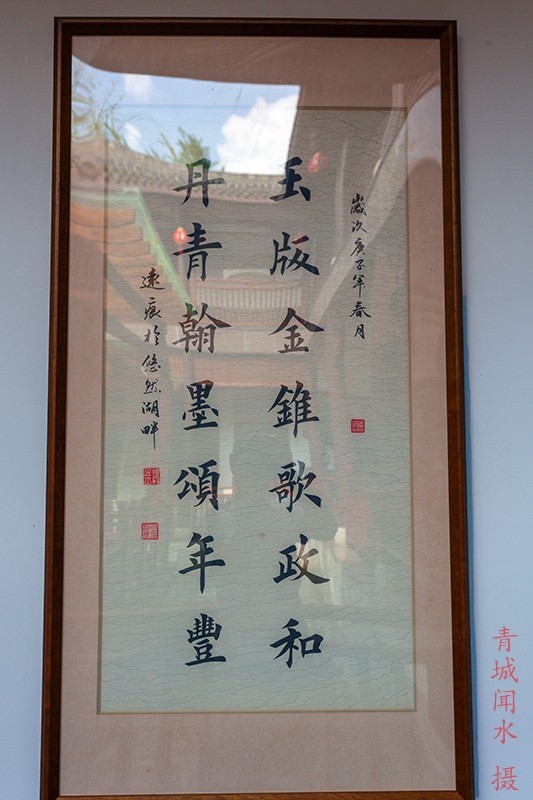 歲次庚子年春月
玉版金錐歌政和
丹青翰墨頌年豐
遠痕於悠然湖畔
青城闻水 摄